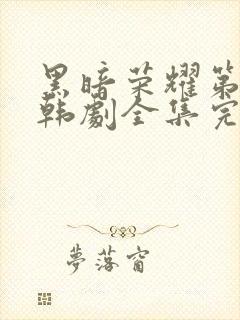 黑暗荣耀第
韩劇全集完
夢落窗